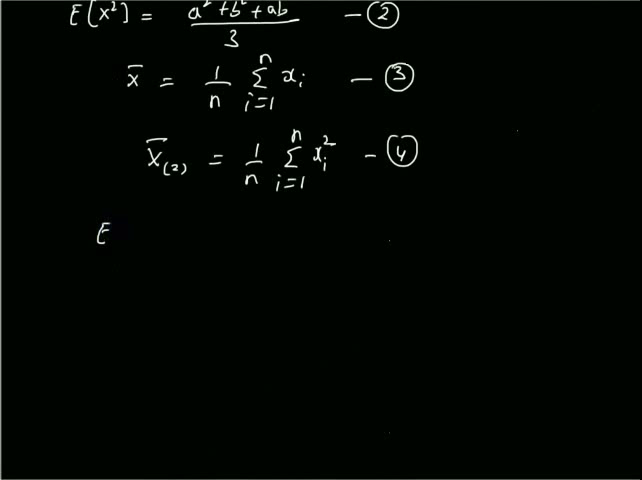 E[X²] = (a² + b² + ab)/3 — ②
x̄ = 1/n ∑_{i=1}^{n} xᵢ — ③
X̄₍₂₎ = 1/n ∑_{i=1}^{n} xᵢ² — ④
E